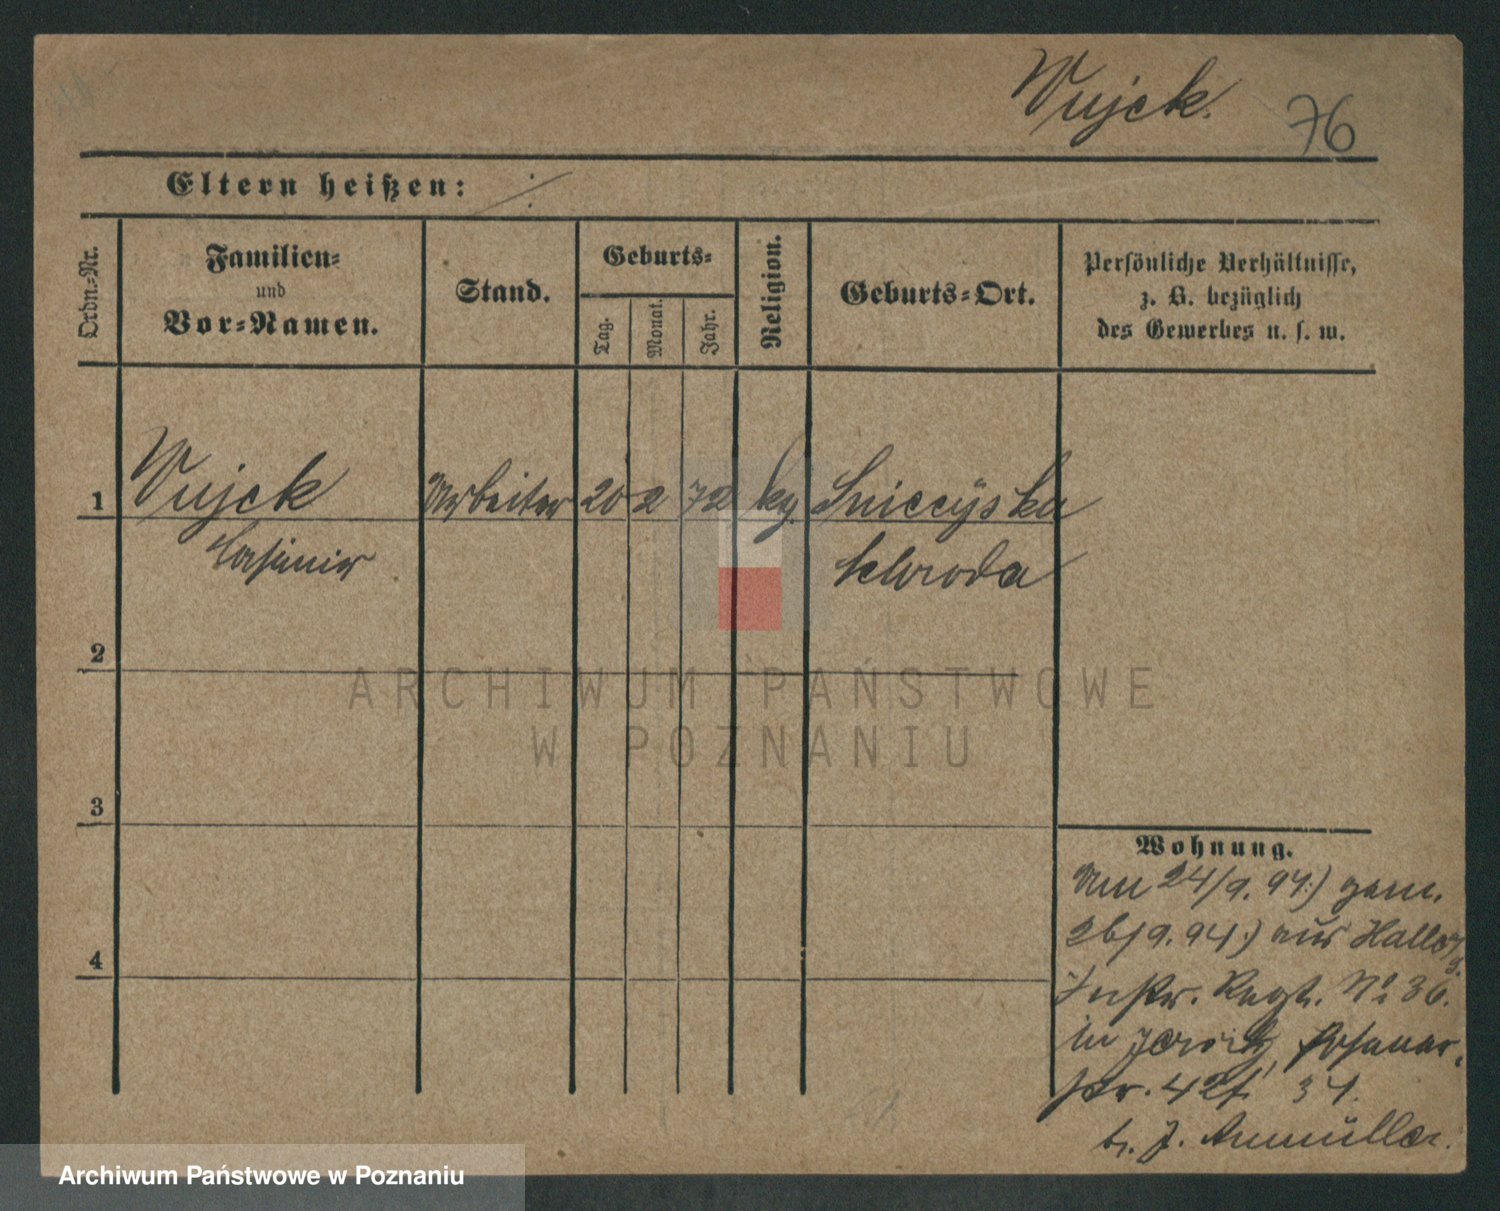 Wujek.
76
Eltern heißen:
Ordn.-Nr.
Familien-
und
Vor-Namen.
Stand.
Geburts-
Tag.
Monat.
Jahr.
Religion.
Geburts-Ort.
Persönliche Verhältnisse,
z. B. bezüglich
des Gewerbes u. s. w.
1
Wujek
Arbeiter
20
2
72
Casimir
Schroda
2
ARCHIWUM PAŃSTWOWE
W POZNANIU
3
4
Wohnung.
Am 24/9. 94.) gem.
26/9. 94.) aus Halle
Regt. No 36.
in Posener-
str. 42
b. J.
Archiwum Państwowe w Poznaniu